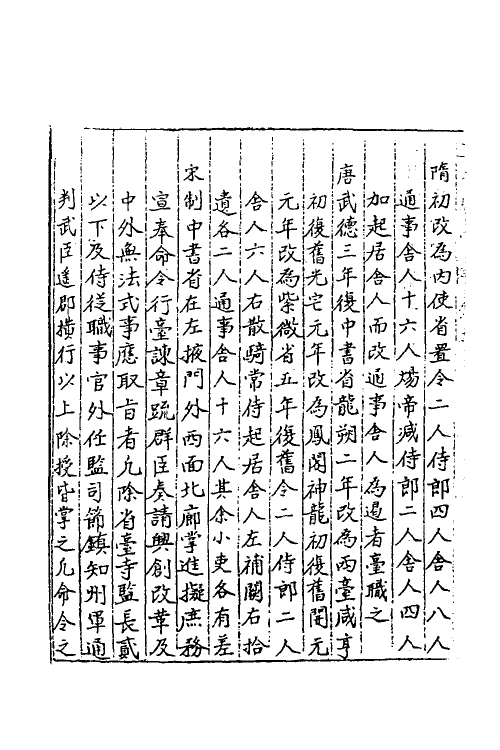 隋初改為内使省置令二人侍郎四人舍人八人
通事舍人十六人煬帝減侍郎二人舍人四人
加起居舍人而改通事舍人為謁者臺職之
唐武德三年復中書省龍朔二年改為西臺咸亨
初復舊光宅元年改為鳳閣神龍初復舊開元
元年改為紫微省五年復舊令二人侍郎二人
舍人六人右散騎常侍起居舍人左補闕右拾
遺各二人通事舍人十六人其余小吏各有差
宋制中書省在左掖門外西面北廊掌進擬庶務
宣奉命令行臺諫章疏群臣奏請興創改革及
中外無法式事應取旨者凡除省臺寺監長貳
以下及侍從職事官外任監司節鎮知州軍通
判武臣遥郡横行以上除授皆掌之凡命令之